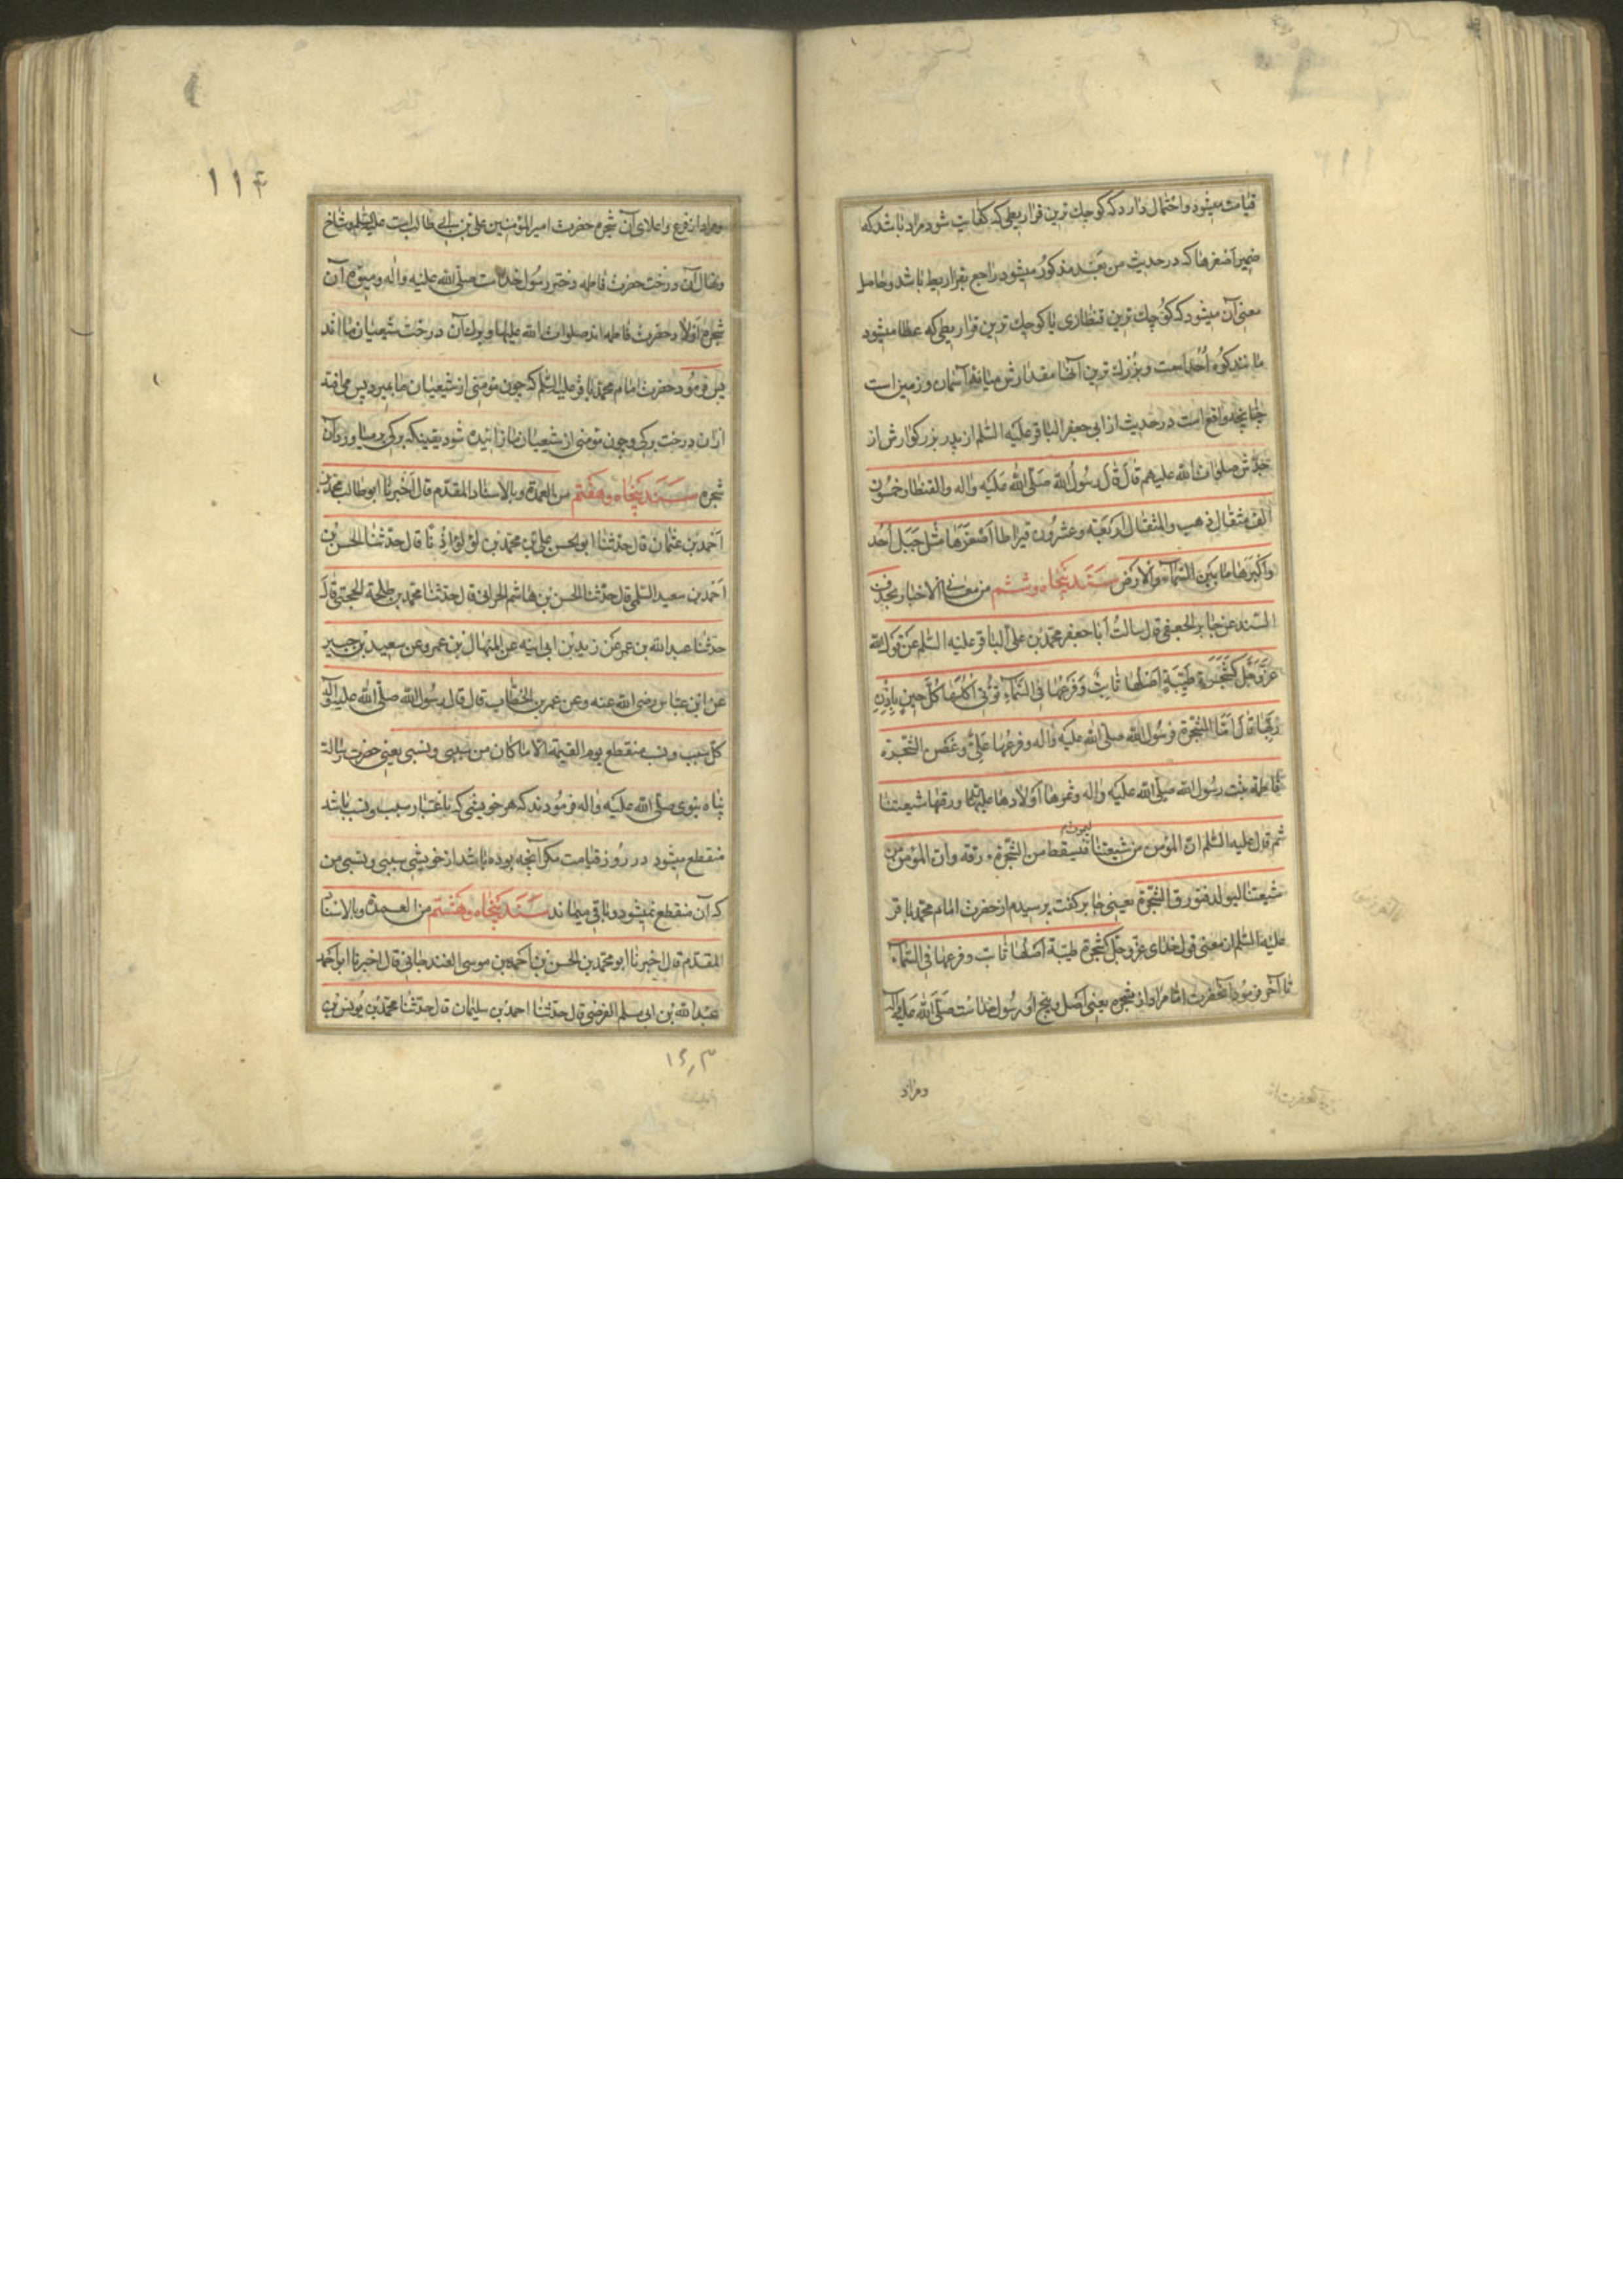 قیامت میشود و احتمال دارد که کوچک ترین قراریطی که کفایت شود مراد باشد که
ضمیر اصغرها که در حدیث من بعد مذکور میشود راجع بقراریط باشد و حاصل
معنی آن میشود که کوچک ترین قنطاری یا کوچک ترین قراریطی که عطا میشود
مانند کوه احد است و بزرک ترین آنها مقدارش میانه آسمان و زمین است
چنانچه واقع است در حدیث از ابی جعفر الباقر علیه السلم از پدر بزرکوارش از
جدش صلوات الله علیهم قال قال رسول الله صلی الله علیه واله والقنطار خمسون
الف مثقال ذهب والمثقال اربعة وعشرون قیراطا اصغرها مثل جبل احد
واکبرها ما بین السماء والارض سند پنجاه و ششم من معانی الاخبار بحذف
السند عن جابر الجعفی قال سالت ابا جعفر محمد بن علی الباقر علیه السلم عن قول الله
عز وجل کشجرة طیبة اصلها ثابت وفرعها فی السماء تؤتی اکلها کل حین باذن
ربها قال اما الشجرة فرسول الله صلی الله علیه واله وفرعها علی وغصن الشجرة
فاطمة بنت رسول الله صلی الله علیه واله وثمرها اولادها علیهم وورقها شیعتنا
ثم قال علیه السلم ان المؤمن من شیعتنا لیموت فتسقط من الشجرة ورقة وان المؤمن من
شیعتنا لیولد فتورق الشجرة یعنی جابر کفت پرسیدم از حضرت امام محمد باقر
علیه السلم از معنی قول خدای عز وجل کشجرة طیبة اصلها ثابت وفرعها فی السماء
تا آخر فرمود آنحضرت اما مراد از شجره یعنی اصل و بیخ او رسول خداست صلی الله علیه واله
ومراد
۱۱۴
ومراد از فرع واعلای آن شجره حضرت امیر المؤمنین علی بن ابی طالب است علیه السلم وشاخ
ونهال آن درخت حضرت فاطمه دختر رسول خداست صلی الله علیه واله ومیوه آن
شجره اولاد حضرت فاطمه اند صلوات الله علیها وبرک آن درخت شیعیان ما اند
پس فرمود حضرت امام محمد باقر علیه السلم که چون مؤمنی از شیعیان ما بمیرد پس می افتد
از ان درخت برکی وچون مؤمنی از شیعیان ما زائیده شود بقین که برکی بر میاورد آن
شجره سند پنجاه وهفتم من العمدة وبالاسناد المقدم قال اخبرنا ابو طالب محمد بن
احمد بن عثمان قال حدثنا ابو الحسن علی بن محمد بن لؤلؤ اذنا قال حدثنا الحسن بن
احمد بن سعید السلمی قال حدثنا الحسن بن هاشم الحرانی قال حدثنا محمد بن طلحة الحجبی قال
حدثنا عبد الله بن عمر عن زید بن ابی انیسه عن المنهال بن عمرو عن سعید بن جبیر
عن ابن عباس رضی الله عنه وعن عمر بن الخطاب قال قال رسول الله صلی الله علیه واله
کل سبب ونسب منقطع یوم القیمة الا ما کان من سببی ونسبی یعنی حضرت رسالت
پناه نبوی صلی الله علیه واله فرمودند که هر خویشی که باعتبار سبب ونسب باشد
منقطع میشود در روز قیامت مکر آنچه بوده باشد از خویشی سببی ونسبی من
که آن منقطع نمیشود وباقی میماند سند پنجاه وهشتم من العمدة وبالاسناد
المقدم قال اخبرنا ابو محمد بن الحسن بن احمد بن موسی الغندجانی قال اخبرنا ابو احمد
عبد الله بن ابی مسلم الفرضی قال حدثنا احمد بن سلیمان قال حدثنا محمد بن یونس بن